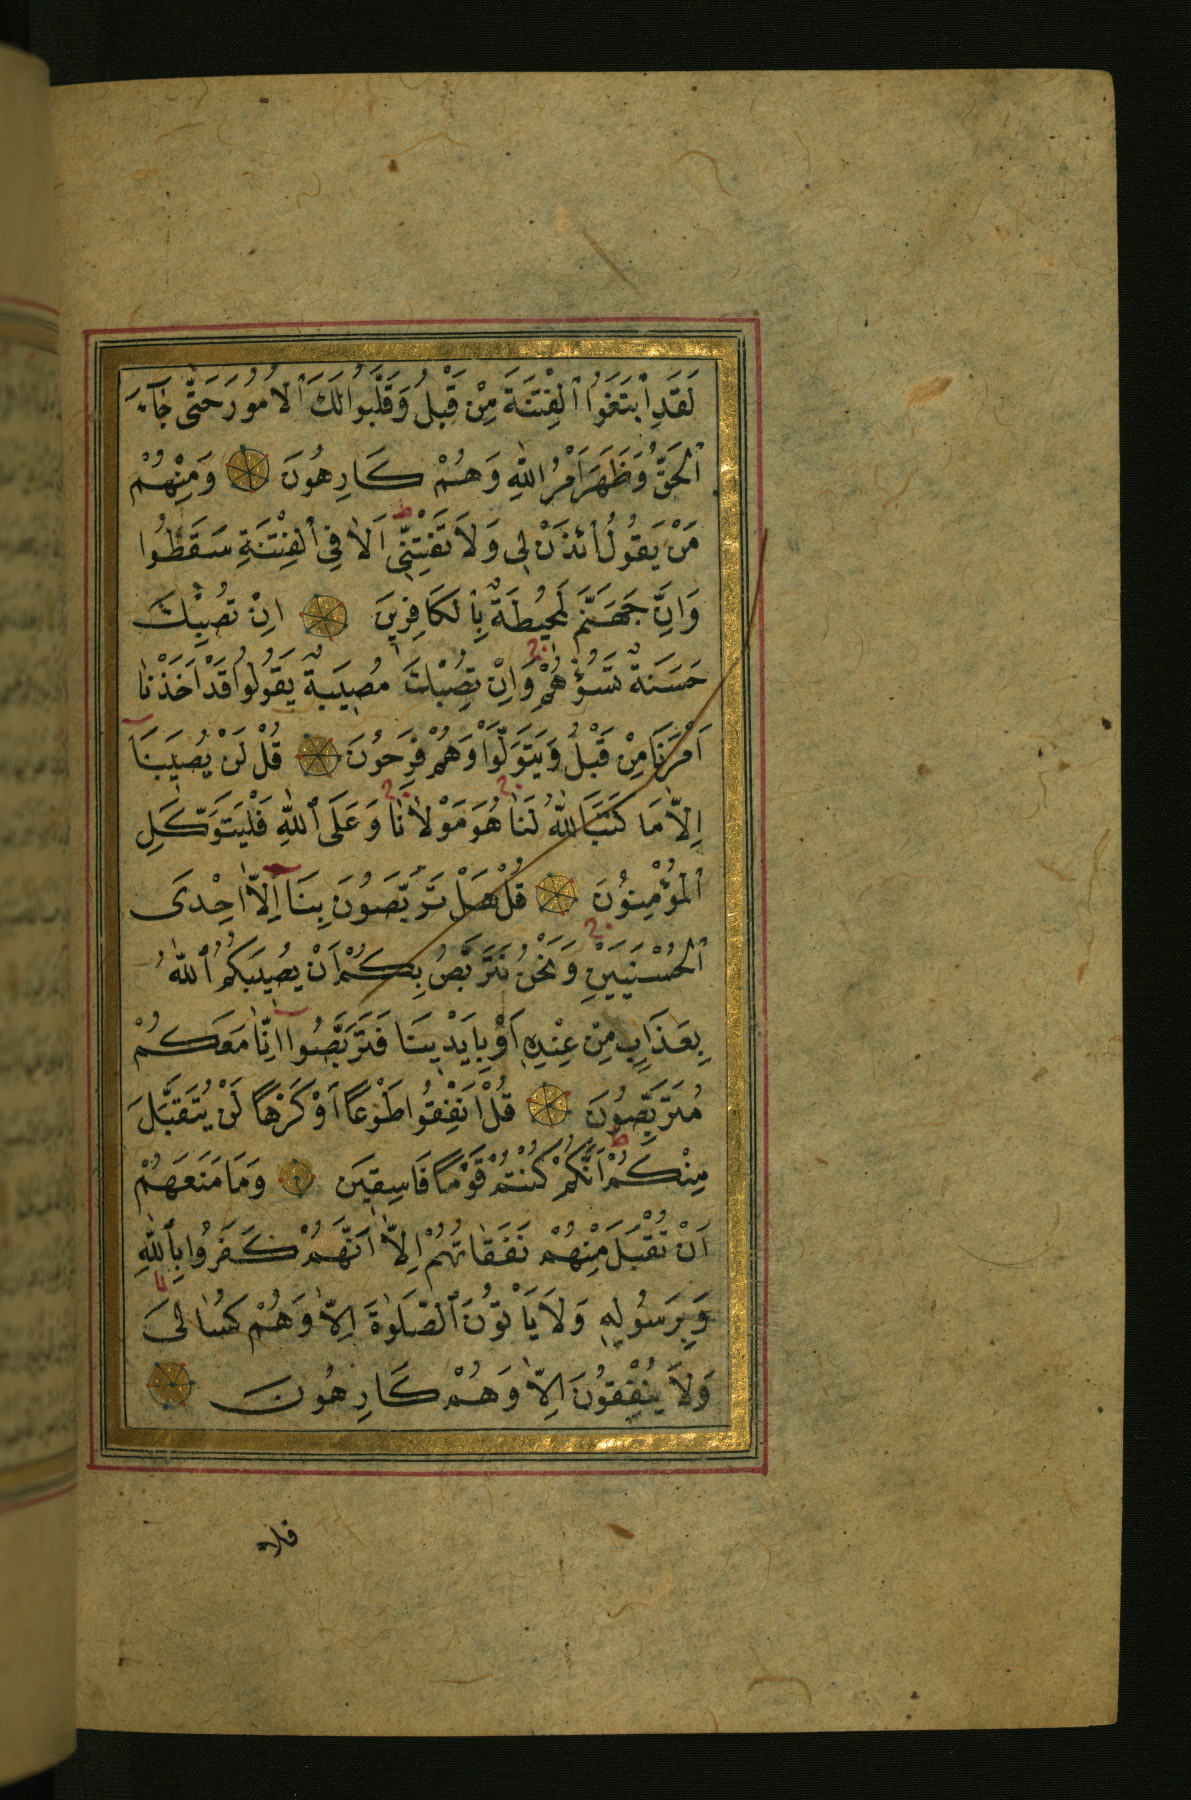 لَقَدِ ابْتَغَوُا الْفِتْنَةَ مِنْ قَبْلُ وَقَلَّبُوا لَكَ الْاُمُورَ حَتّٰى جَآءَ
الْحَقُّ وَظَهَرَ اَمْرُ اللّٰهِ وَهُمْ كَارِهُونَ وَمِنْهُمْ
مَنْ يَقُولُ ائْذَنْ لِى وَلَا تَفْتِنِّى ط اَلَا فِى الْفِتْنَةِ سَقَطُوا
وَاِنَّ جَهَنَّمَ لَمُحِيطَةٌ بِالْكَافِرِينَ اِنْ تُصِبْكَ
حَسَنَةٌ تَسُؤْهُمْ ج وَاِنْ تُصِبْكَ مُصِيبَةٌ يَقُولُوا قَدْ اَخَذْنَا
اَمْرَنَا مِنْ قَبْلُ وَيَتَوَلَّوْا وَهُمْ فَرِحُونَ قُلْ لَنْ يُصِيبَنَا
اِلَّا مَا كَتَبَ اللّٰهُ لَنَا ج هُوَ مَوْلٰانَا ج وَعَلَى اللّٰهِ فَلْيَتَوَكَّلِ
الْمُؤْمِنُونَ قُلْ هَلْ تَرَبَّصُونَ بِنَا اِلَّا اِحْدَى
الْحُسْنَيَيْنِ ج وَنَحْنُ نَتَرَبَّصُ بِكُمْ اَنْ يُصِيبَكُمُ اللّٰهُ
بِعَذَابٍ مِنْ عِنْدِهِ اَوْ بِاَيْدِينَا فَتَرَبَّصُوا اِنَّا مَعَكُمْ
مُتَرَبِّصُونَ قُلْ اَنْفِقُوا طَوْعًا اَوْ كَرْهًا لَنْ يُتَقَبَّلَ
مِنْكُمْ ط اِنَّكُمْ كُنْتُمْ قَوْمًا فَاسِقِينَ وَمَا مَنَعَهُمْ
اَنْ تُقْبَلَ مِنْهُمْ نَفَقَاتُهُمْ اِلَّا اَنَّهُمْ كَفَرُوا بِاللّٰهِ
وَبِرَسُولِهِ وَلَا يَاْتُونَ الصَّلٰوةَ اِلَّا وَهُمْ كُسَالٰى
وَلَا يُنْفِقُونَ اِلَّا وَهُمْ كَارِهُونَ
فلا